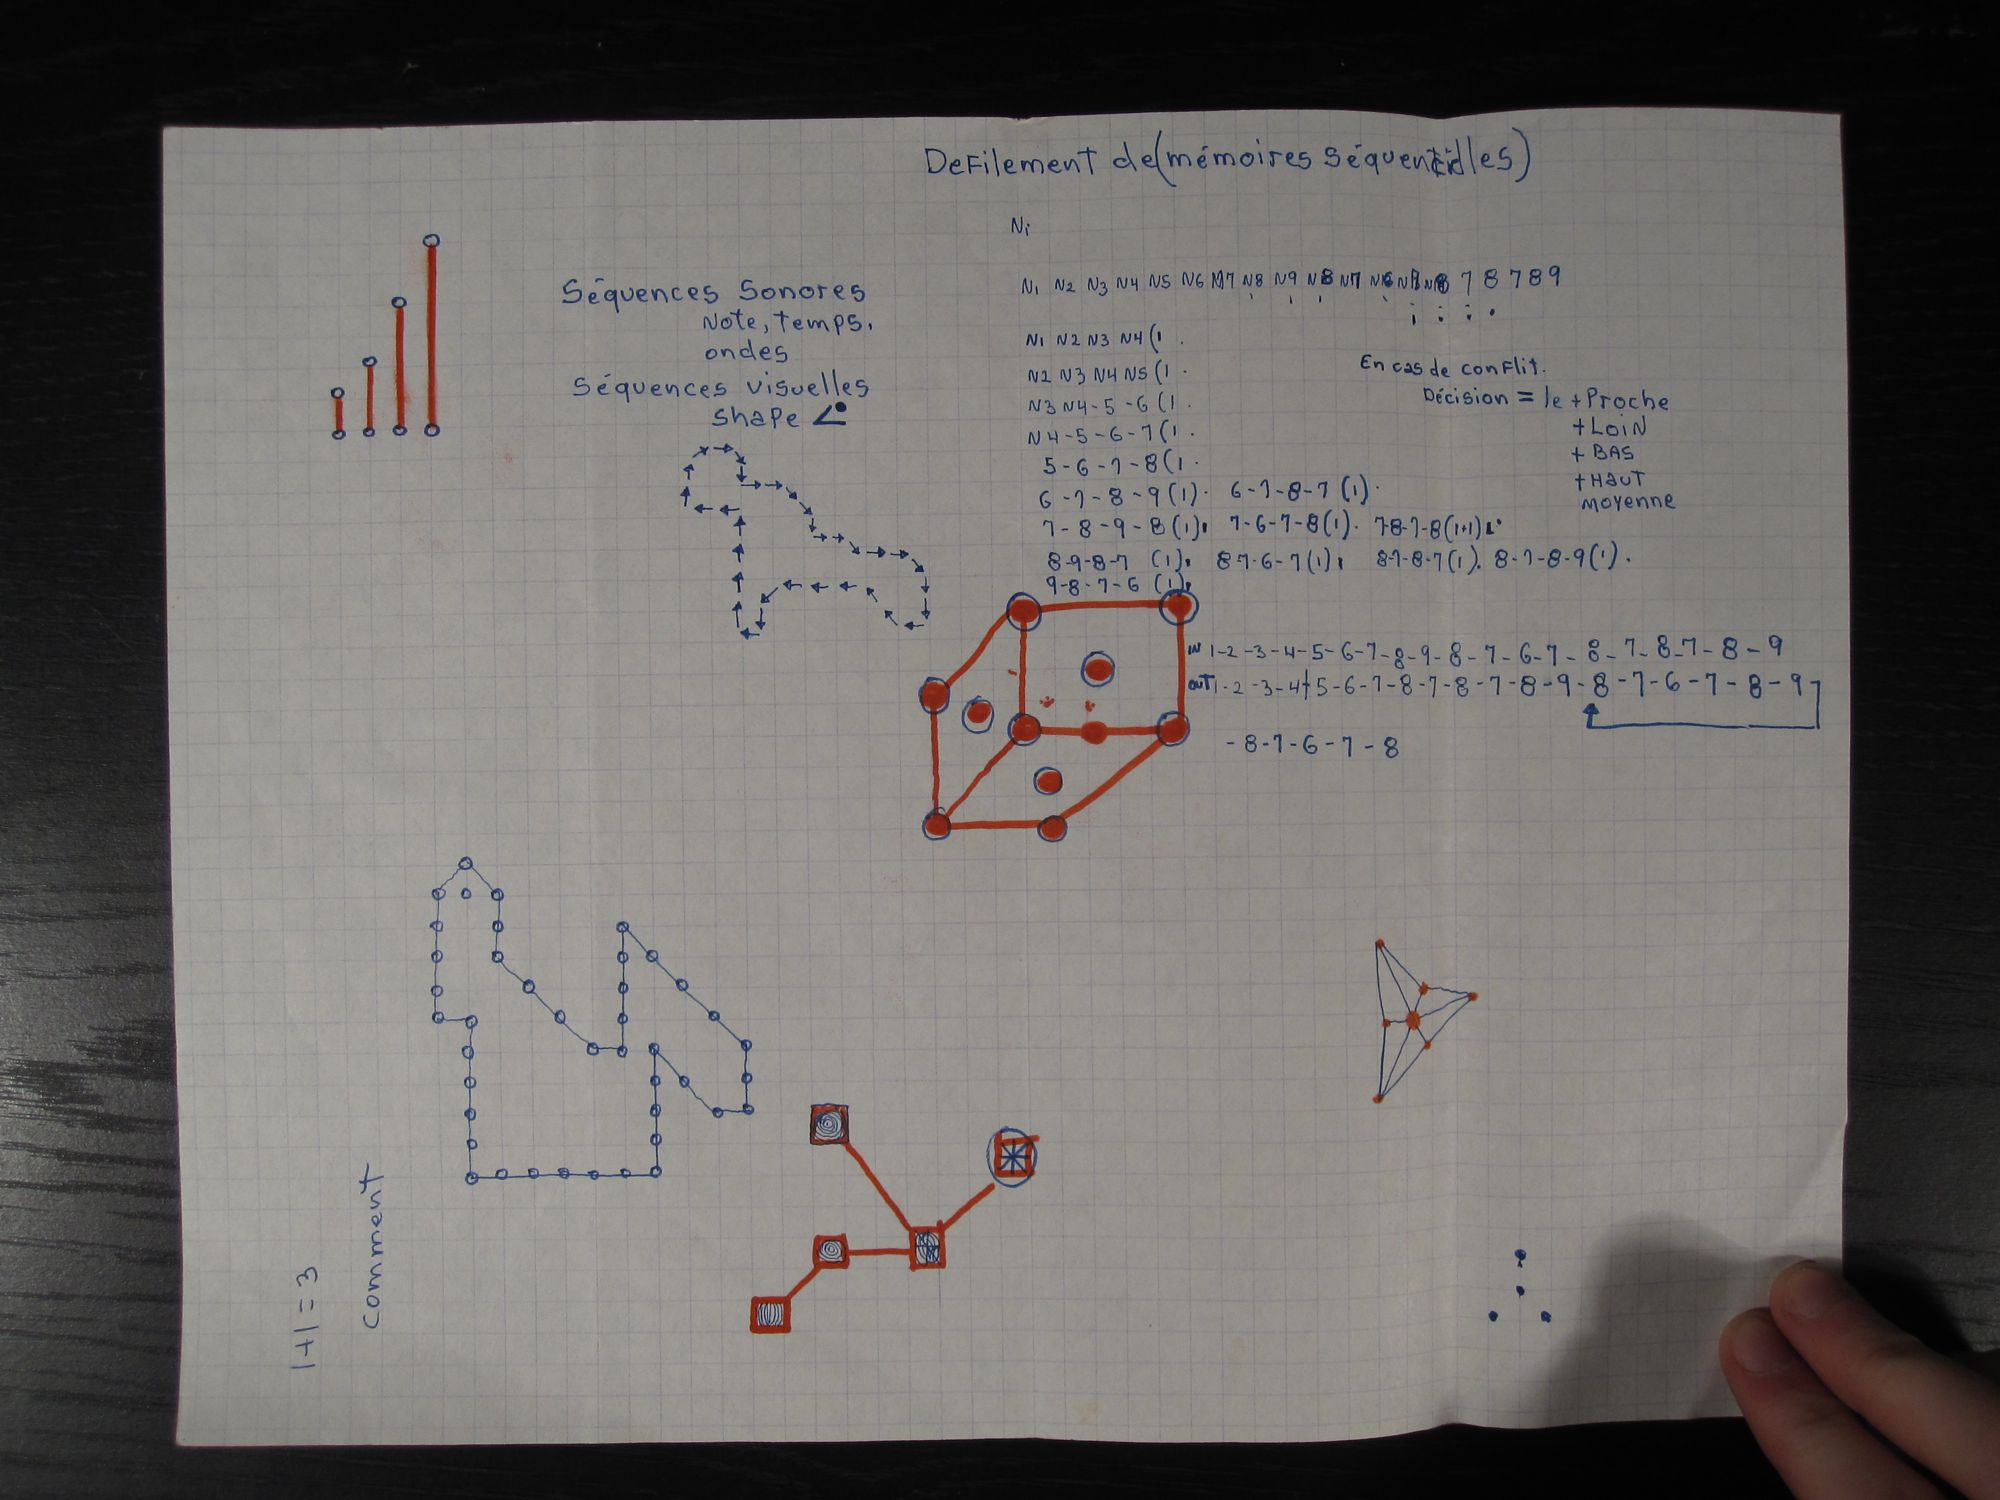 DeFilement de (mémoires Séquentielles)
Ni
N1 N2 N3 N4 N5 N6 N7 N8 N9 N8 N7 N6 N7 N8 7 8 7 8 9
Séquences Sonores
Note, temps,
ondes
Séquences visuelles
shape
N1 N2 N3 N4 (1
N2 N3 N4 N5 (1
N3 N4-5-6 (1
N4-5-6-7 (1
5-6-7-8 (1
6-7-8-9 (1) 6-7-8-7 (1)
7-8-9-8 (1) 7-6-7-8 (1) 7-8-7-8 (1+1)
8-9-8-7 (1) 8-7-6-7 (1) 8-7-8-7 (1) 8-7-8-9 (1)
9-8-7-6 (1)
En cas de conflit.
Décision = le + Proche
+ LOIN
+ BAS
+ HAUT
moyenne
IN 1-2-3-4-5-6-7-8-9-8-7-6-7-8-7-8-7-8-9
OUT 1-2-3-4-5-6-7-8-7-8-7-8-9-8-7-6-7-8-9
-8-7-6-7-8
1+1=3
comment